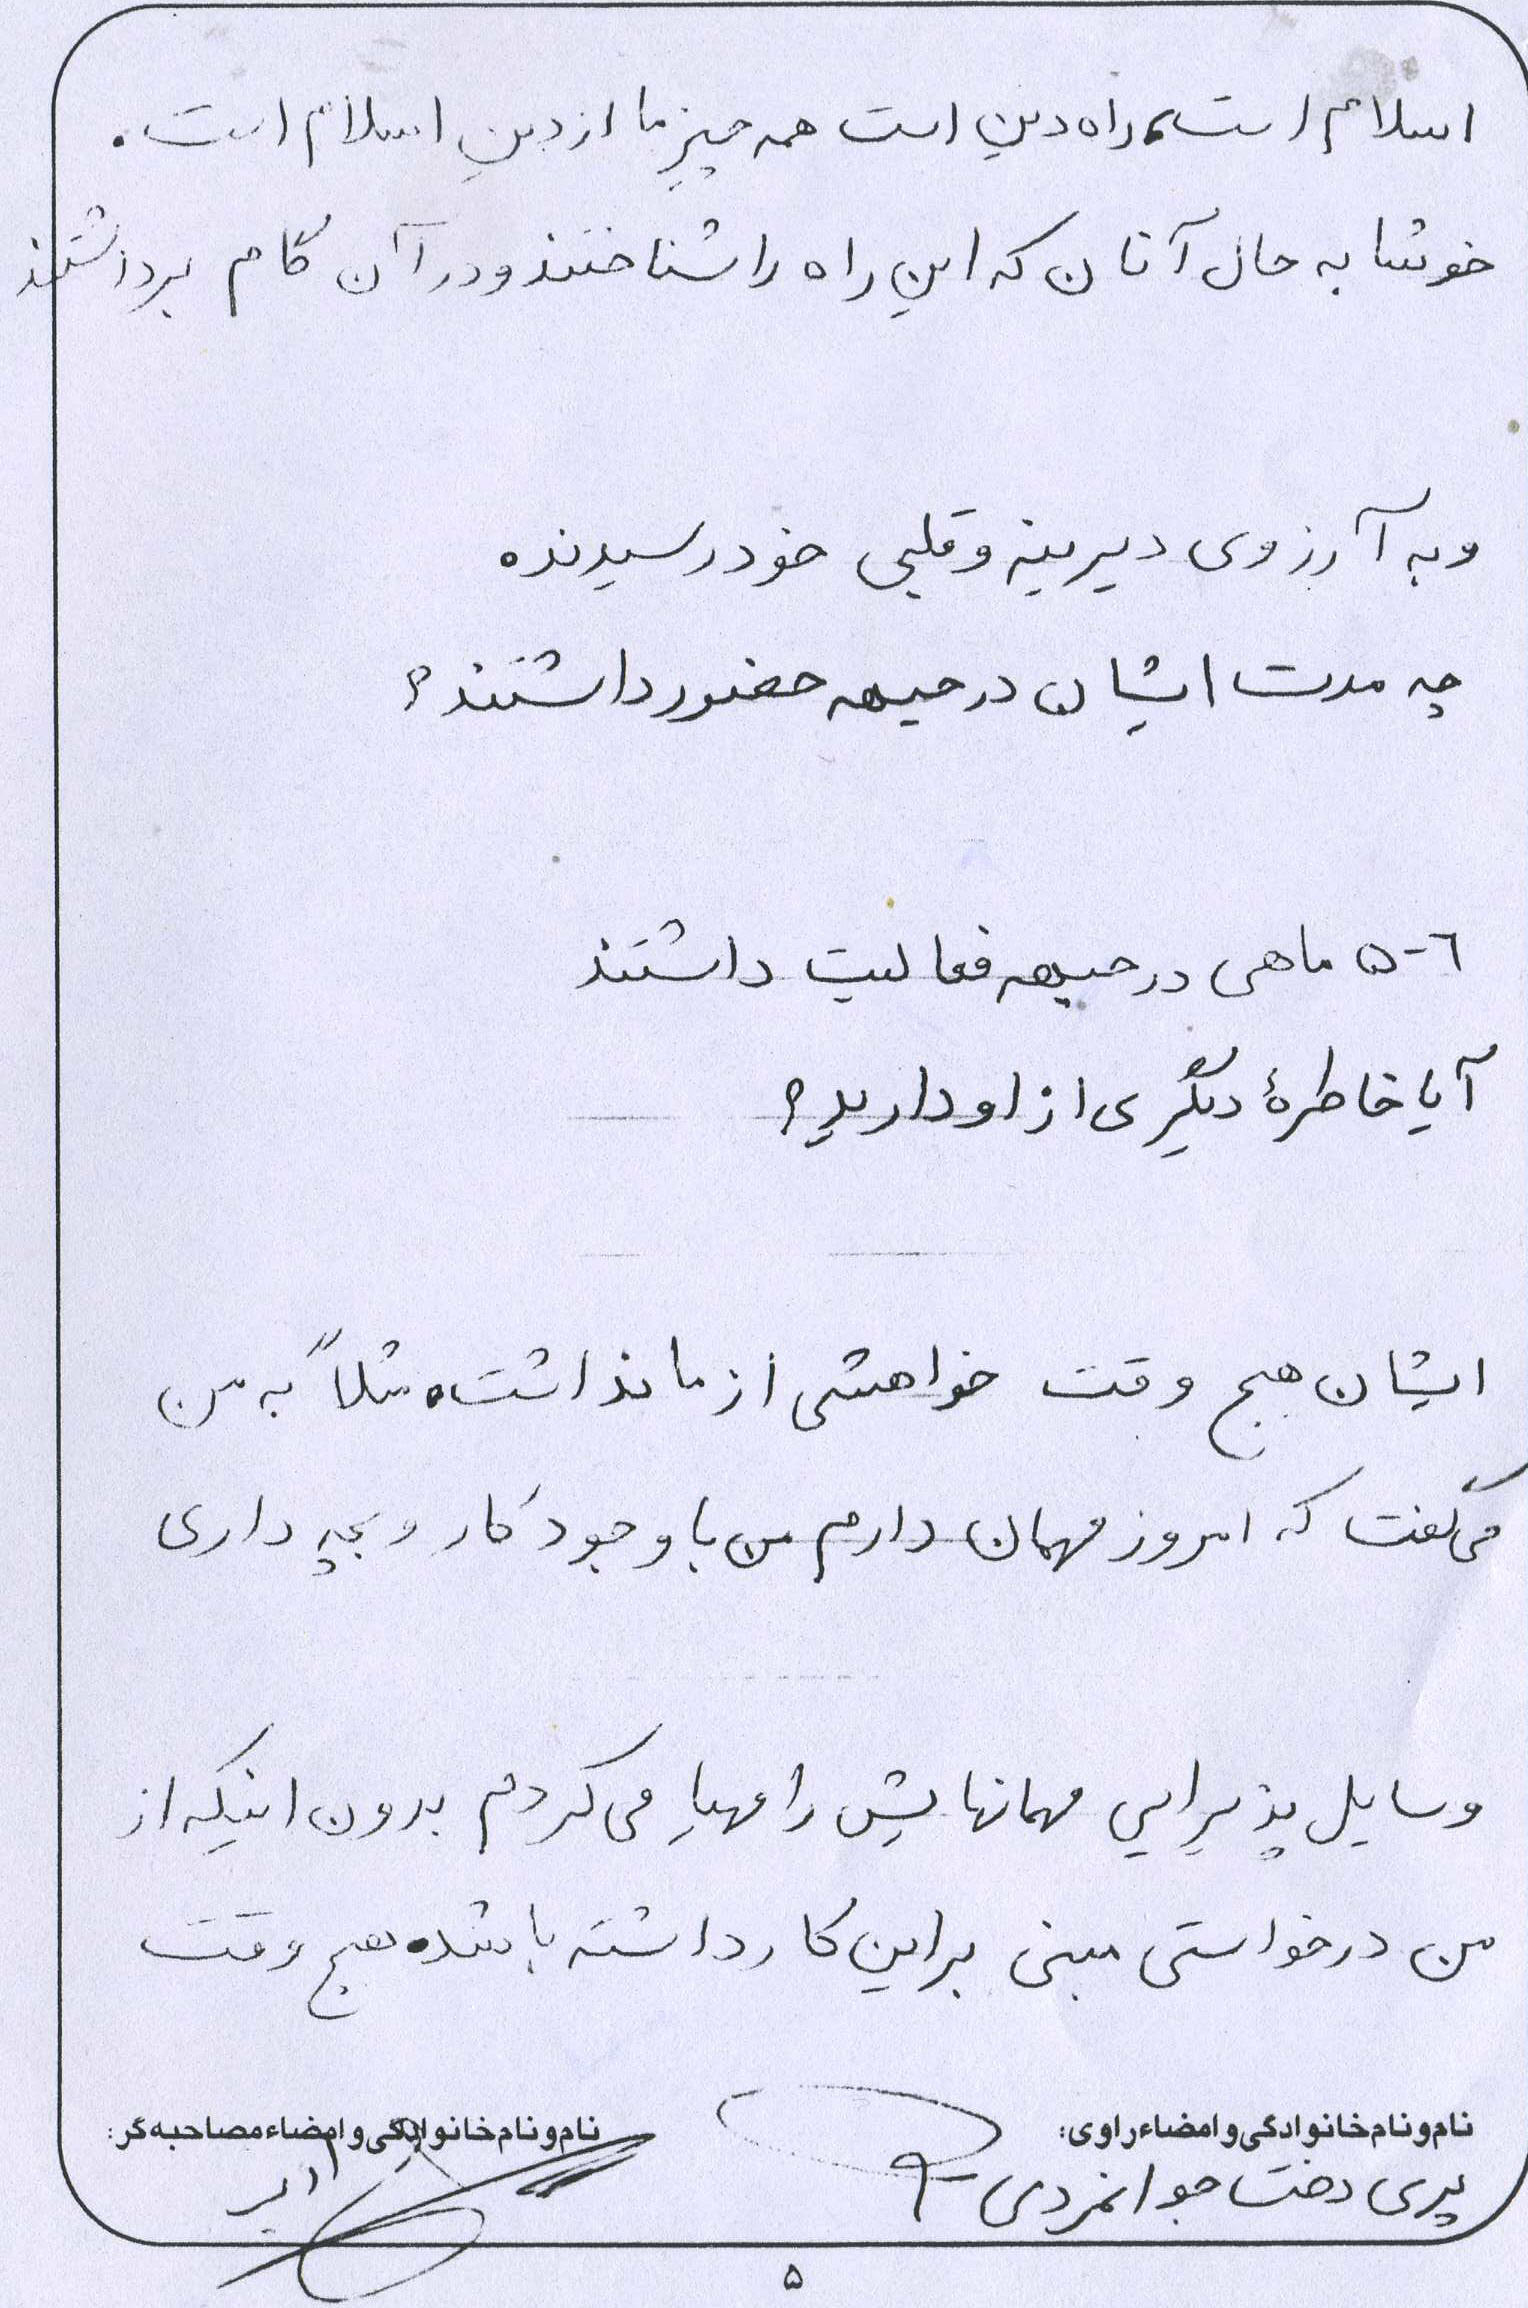 اسلام است، راه دین است همه چیز ما از دین اسلام است.
خوشا به حال آنان که این راه را شناختند و در آن گام برداشتند
و به آرزوی دیرینه و قلبی خود رسیدند.
چه مدت ایشان در جبهه حضور داشتند؟
۵-۶ ماهی در جبهه فعالیت داشتند
آیا خاطرهٔ دیگری از او دارید؟
ایشان هیچ وقت خواهشی از ما نداشت. مثلاً به من
می‌گفت که امروز مهمان دارم من با وجود کار و بچه داری
وسایل پذیرایی مهمانهایش را مهیا می‌کردم بدون اینکه از
من درخواستی مبنی بر این کار داشته باشد. هیچ وقت
نام و نام خانوادگی و امضاء راوی:
نام و نام خانوادگی و امضاء مصاحبه‌گر:
پری دخت جوانمردی
۵